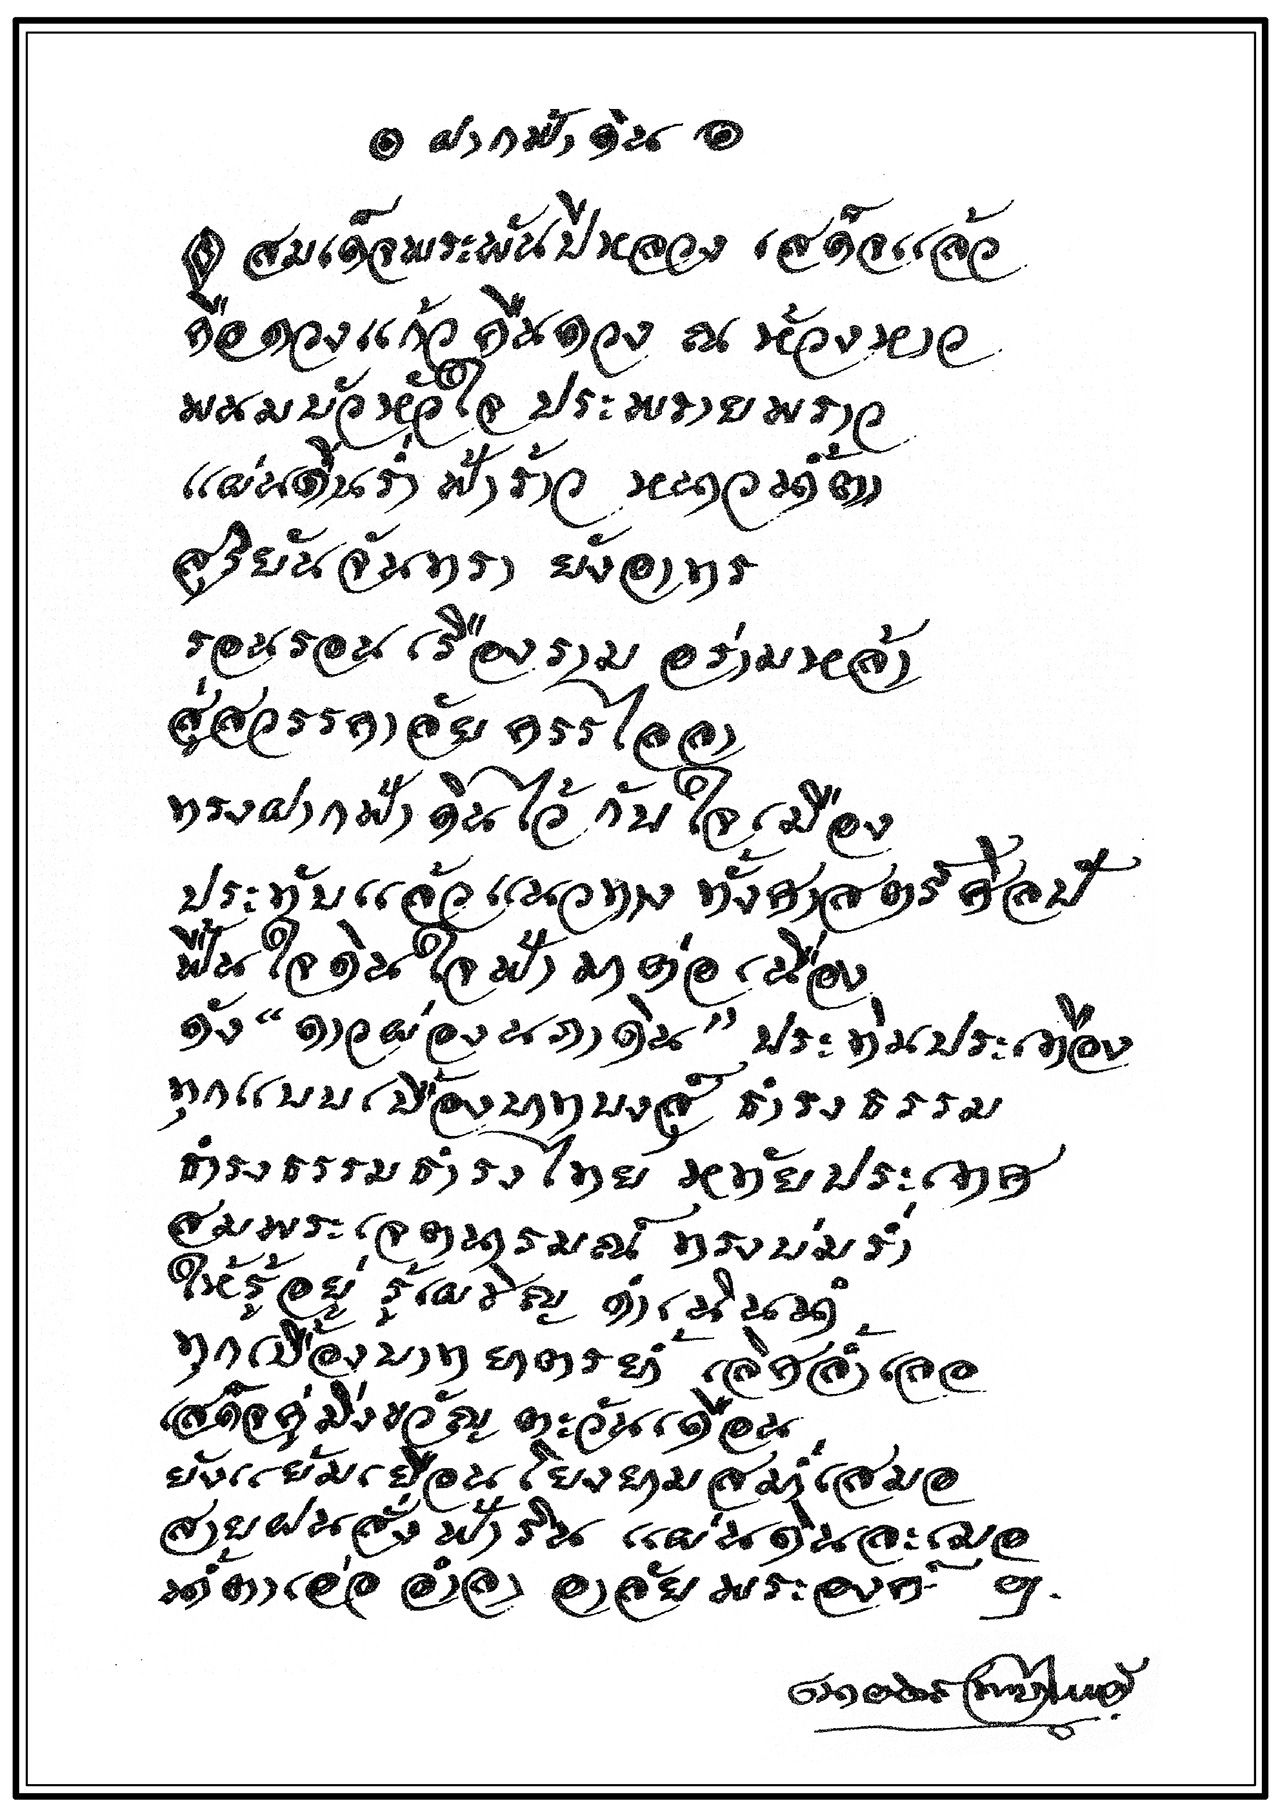 ๏ ฝากฟ้าดิน ๏
๏ สมเด็จพระพันปีหลวง เสด็จแล้ว
คือดวงแก้ว คืนดวง ณ ห้วงหาว
พนมบัวหัวใจ ประพรายพราว
แผ่นดินร่ำ ฟ้าร้าว หนาวน้ำตา
สุริยันจันทรา ยังอาทร
รอนรอน เรืองราม อร่ามหล้า
สู่สวรรคาลัย ครรไลลา
ทรงฝากฟ้า ดินไว้ กับใจเมือง
ประทับแล้ว แนวทาง ทั้งศาสตร์ศิลป์
ฟื้นใจดิน ใจฟ้า มาต่อเนื่อง
ดัง “ดาวผ่องนภาดิน” ประทิ่นประเทือง
ทุกแบบเบื้องบาทบงสุ์ ธำรงธรรม
ธำรงธรรมธำรงไทย หทัยประเทศ
สมพระเจตนารมณ์ ทรงบ่มร่ำ
ให้รู้อยู่ รู้เผชิญ ดำเนินนำ
ทุกเบื้องบาท ยาตรย้ำ เลิศล้ำเลอ
เสด็จคู่มิ่งขวัญ ตะวันเดือน
ยังแย้มเยือน โยงยามสม่ำเสมอ
สายฝนสั่ง ฟ้าริน แผ่นดินละเมอ
น้ำตาเอ่อ อำลา อาลัย พระองค์ ฯ
เนาวรัตน์ พงษ์ไพบูลย์